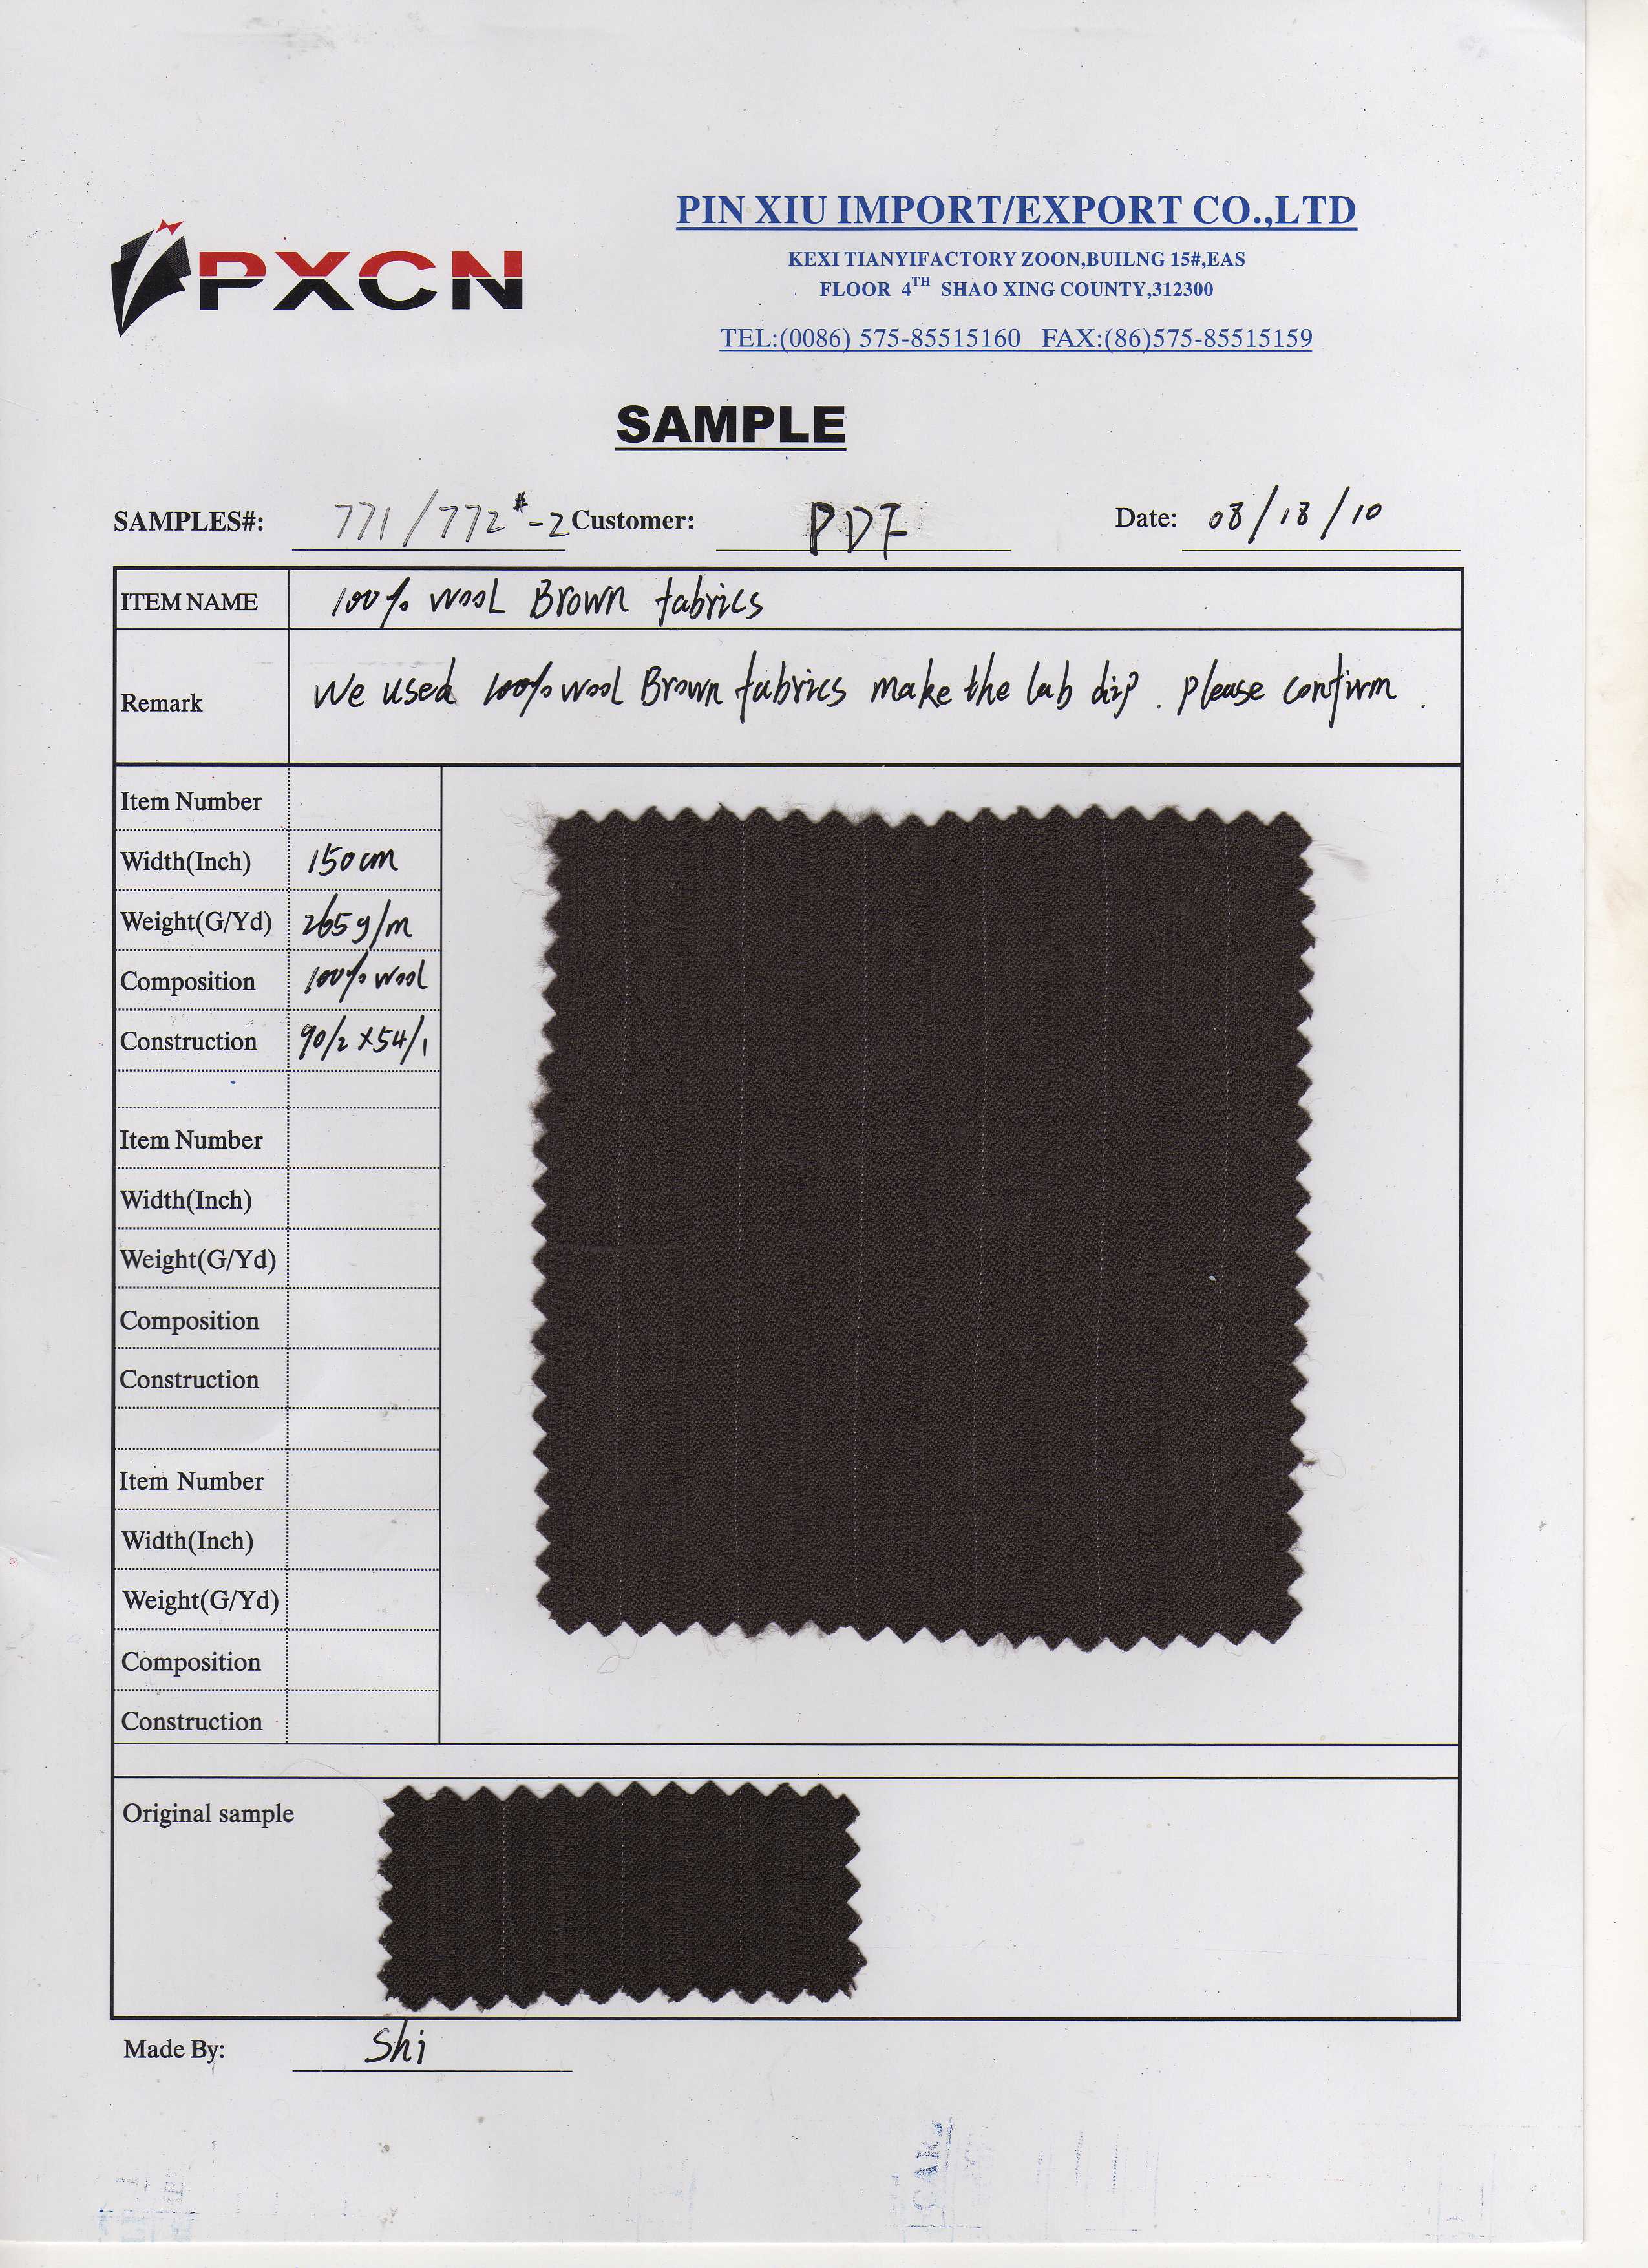 PXCN
PIN XIU IMPORT/EXPORT CO.,LTD
KEXI TIANYIFACTORY ZOON,BUILNG 15#,EAS
FLOOR 4TH SHAO XING COUNTY,312300
TEL:(0086) 575-85515160 FAX:(86)575-85515159
SAMPLE
SAMPLES#: 771/772#-2 Customer: PDF Date: 08/18/10
ITEM NAME 100% wool Brown fabrics
Remark We used 100% wool Brown fabrics make the lab dip. please confirm.
Item Number
Width(Inch) 150cm
Weight(G/Yd) 265g/m
Composition 100% wool
Construction 90/2 x 54/1
Item Number
Width(Inch)
Weight(G/Yd)
Composition
Construction
Item Number
Width(Inch)
Weight(G/Yd)
Composition
Construction
Original sample
Made By: Shi